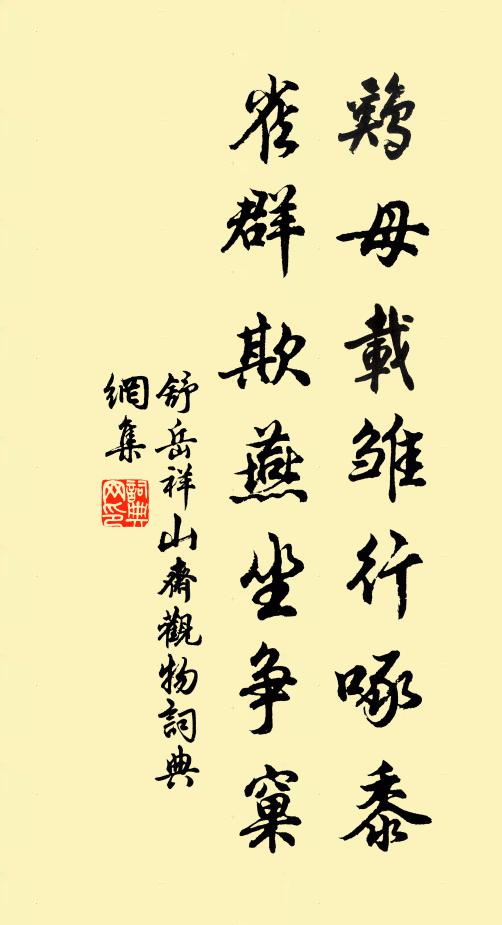 鷄母載雛行啄黍
雀群欺燕坐争窠
舒岳祥山齋觀物詞典
網集
詞典网印